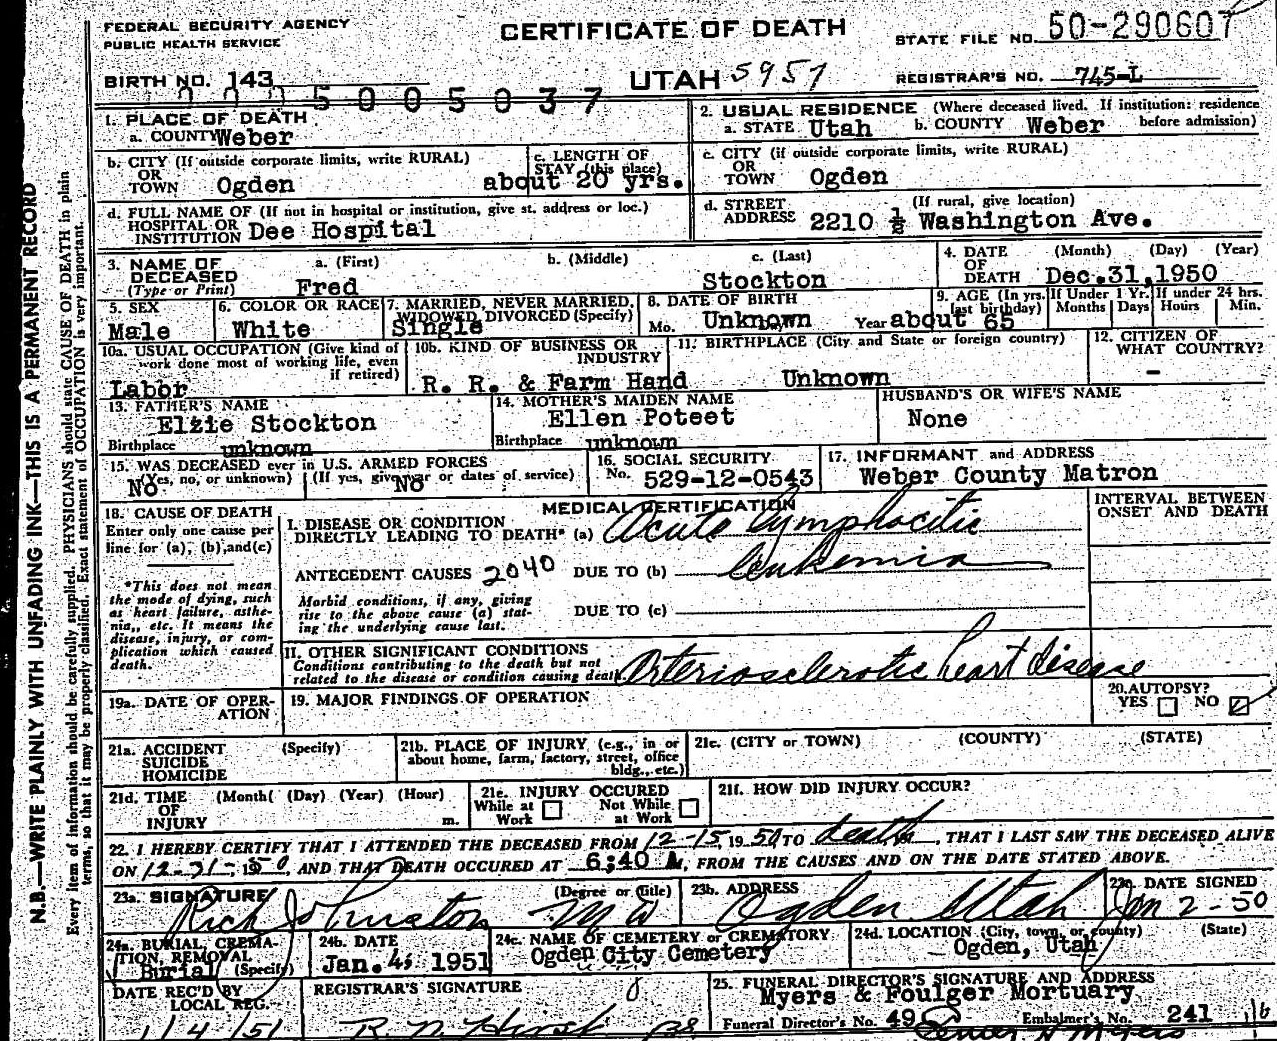 FEDERAL SECURITY AGENCY
PUBLIC HEALTH SERVICE
CERTIFICATE OF DEATH
STATE FILE NO. 50-290607
BIRTH NO. 143
UTAH 5957
REGISTRAR'S NO. 745-L
0 0 0 5 0 0 5 0 3 7
1. PLACE OF DEATH
a. COUNTY Weber
2. USUAL RESIDENCE (Where deceased lived. If institution: residence before admission)
a. STATE Utah b. COUNTY Weber
b. CITY (If outside corporate limits, write RURAL)
OR
TOWN Ogden
c. LENGTH OF
STAY (this place)
about 20 yrs.
c. CITY (if outside corporate limits, write RURAL)
OR
TOWN Ogden
d. FULL NAME OF (If not in hospital or institution, give st. address or loc.)
HOSPITAL OR
INSTITUTION Dee Hospital
d. STREET (If rural, give location)
ADDRESS 2210 ½ Washington Ave.
3. NAME OF a. (First) b. (Middle) c. (Last)
DECEASED
(Type or Print) Fred Stockton
4. DATE (Month) (Day) (Year)
OF
DEATH Dec. 31, 1950
5. SEX
Male
6. COLOR OR RACE
White
7. MARRIED, NEVER MARRIED,
WIDOWED, DIVORCED (Specify)
Single
8. DATE OF BIRTH
Mo. Unknown Day Year
9. AGE (In yrs. last birthday)
about 65
If Under 1 Yr. Months Days
If under 24 hrs. Hours Min.
10a. USUAL OCCUPATION (Give kind of
work done most of working life, even
if retired)
Labor
10b. KIND OF BUSINESS OR
INDUSTRY
R. R. & Farm Hand
11. BIRTHPLACE (City and State or foreign country)
Unknown
12. CITIZEN OF
WHAT COUNTRY?
-
13. FATHER'S NAME
Elzie Stockton
Birthplace unknown
14. MOTHER'S MAIDEN NAME
Ellen Poteet
Birthplace unknown
HUSBAND'S OR WIFE'S NAME
None
15. WAS DECEASED ever in U.S. ARMED FORCES
(Yes, no, or unknown) (If yes, give war or dates of service)
No No
16. SOCIAL SECURITY
No. 529-12-0543
17. INFORMANT and ADDRESS
Weber County Matron
18. CAUSE OF DEATH
Enter only one cause per
line for (a), (b), and (c)
*This does not mean
the mode of dying, such
as heart failure, asthe-
nia, etc. It means the
disease, injury, or com-
plication which caused
death.
MEDICAL CERTIFICATION
INTERVAL BETWEEN
ONSET AND DEATH
I. DISEASE OR CONDITION
DIRECTLY LEADING TO DEATH* (a) Acute Lymphocitic
ANTECEDENT CAUSES 2040 DUE TO (b) leukemia
Morbid conditions, if any, giving
rise to the above cause (a) stat-
ing the underlying cause last.
DUE TO (c)
II. OTHER SIGNIFICANT CONDITIONS
Conditions contributing to the death but not
related to the disease or condition causing death.
Arteriosclerotic heart disease
19a. DATE OF OPER-
ATION
19. MAJOR FINDINGS OF OPERATION
20. AUTOPSY?
YES NO
21a. ACCIDENT (Specify)
SUICIDE
HOMICIDE
21b. PLACE OF INJURY (e.g., in or
about home, farm, factory, street, office
bldg., etc.)
21c. (CITY or TOWN) (COUNTY) (STATE)
21d. TIME (Month) (Day) (Year) (Hour)
OF
INJURY m.
21e. INJURY OCCURED
While at Work Not While at Work
21f. HOW DID INJURY OCCUR?
22. I HEREBY CERTIFY THAT I ATTENDED THE DECEASED FROM 12-15, 1950 TO death, THAT I LAST SAW THE DECEASED ALIVE
ON 12-31-, 1950, AND THAT DEATH OCCURED AT 6:40 A M, FROM THE CAUSES AND ON THE DATE STATED ABOVE.
23a. SIGNATURE (Degree or title)
Rich Johnston M D
23b. ADDRESS
Ogden Utah
23c. DATE SIGNED
Jan 2-50
24a. BURIAL, CREMA-
TION, REMOVAL
Burial (Specify)
24b. DATE
Jan. 4, 1951
24c. NAME OF CEMETERY or CREMATORY
Ogden City Cemetery
24d. LOCATION (City, town, or county) (State)
Ogden, Utah
DATE REC'D BY
LOCAL REG.
1/4/51
REGISTRAR'S SIGNATURE
25. FUNERAL DIRECTOR'S SIGNATURE AND ADDRESS
Myers & Foulger Mortuary
Funeral Director's No. 49 Embalmer's No. 241
N.B.—WRITE PLAINLY WITH UNFADING INK—THIS IS A PERMANENT RECORD
Every item of information should be carefully supplied. PHYSICIANS should state CAUSE OF DEATH in plain
terms, so that it may be properly classified. Exact statement of OCCUPATION is very important.